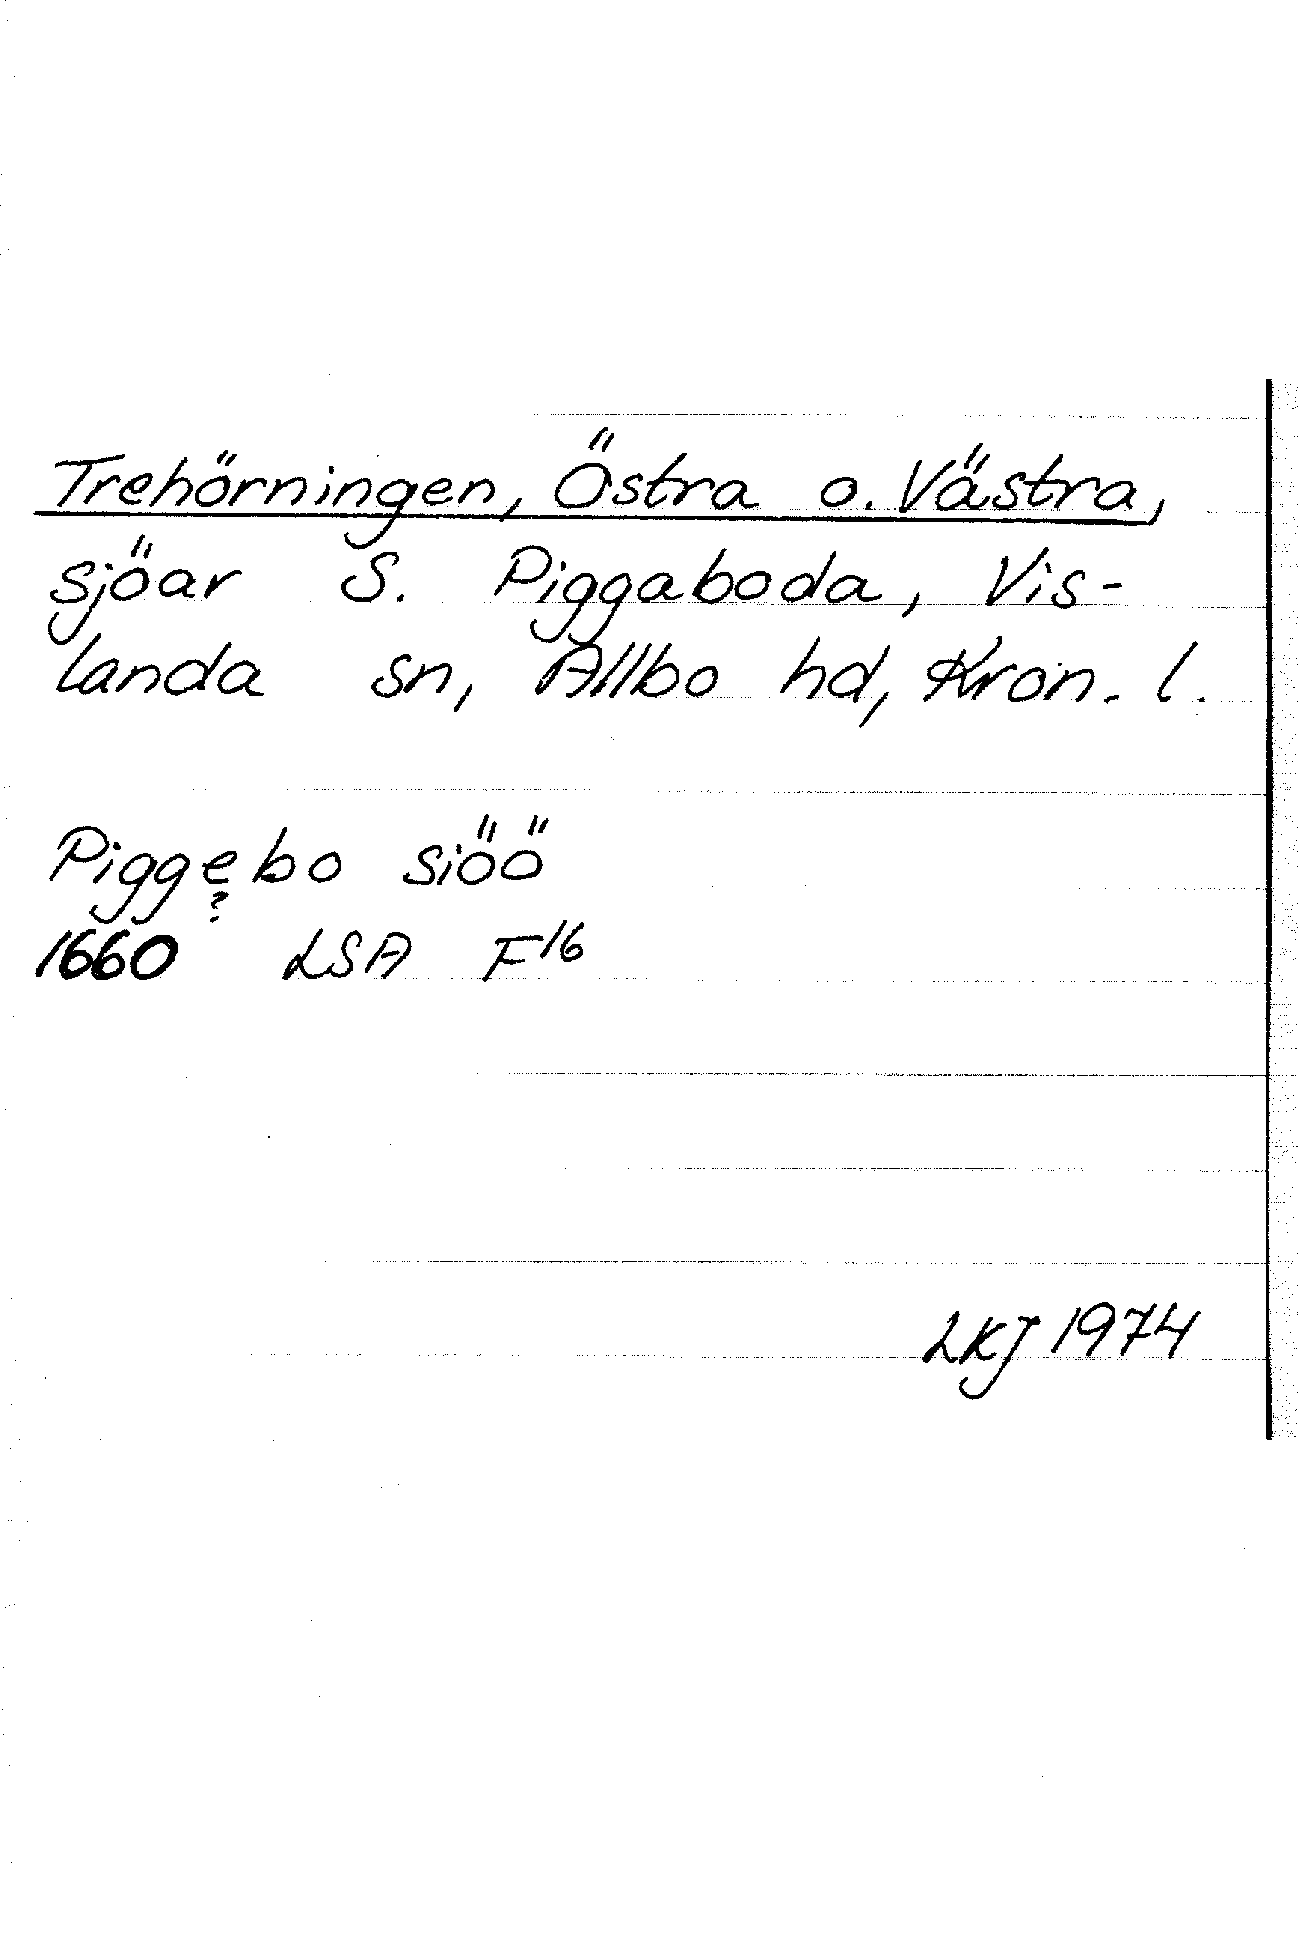 Trehörningen, Östra o. Västra,
sjöar S. Piggaboda, Vis-
landa sn, Allbo hd, Kron. l.
Piggebo siöö
?
1660 LSA F16
LKJ 1974